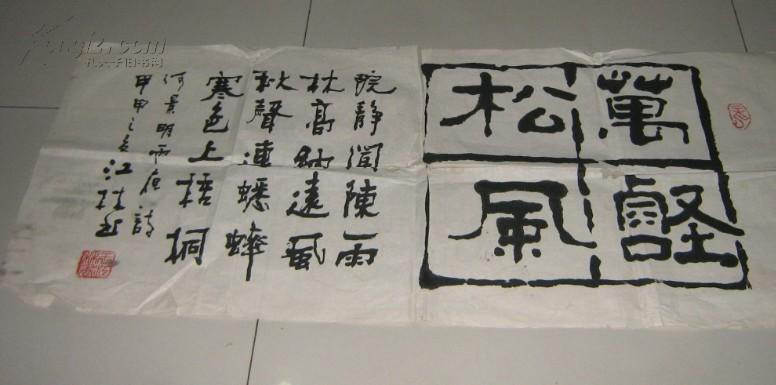 萬壑
松風
院靜聞疎雨
林高納遠風
秋聲連蟋蟀
寒色上梧桐
何景明雨夜詩
甲申之夏江
孔夫子旧书网